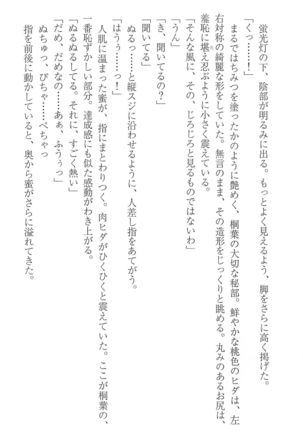 蛍光灯の下、陰部が明るみに出る。もっとよく見えるよう、脚をさらに高く掲げた。
「くっ……！」
まるではちみつを塗ったかのように艶めく、桐葉の大切な秘部。鮮やかな桃色のヒダは、左
右対称の綺麗な形をしていた。無言のまま、その造形をじっくりと眺める。丸みのあるお尻は、
羞恥に堪え忍ぶように小さく震えている。
「そんな風に、その、じろじろと見るものではないわ」
「うん」
「き、聞いてるの？」
「聞いてる」
ぬるっ……と縦スジに沿わせるように、人差し指をあてがう。
「はうぅ……っ！」
人肌に温まった蜜が、指にまとわりつく。肉ヒダがひくひくと震えていた。ここが桐葉の、
一番恥ずかしい部分。達成感にも似た感動がわき上がる。
「ぬるぬるしてる。それに、すごく熱い」
「だめ、だめなの……あぁ、ふうっ」
ぬちゅっ、ぴちゃ……ぺちゃっ
指を前後に動かしていると、奥から蜜がさらに溢れてきた。